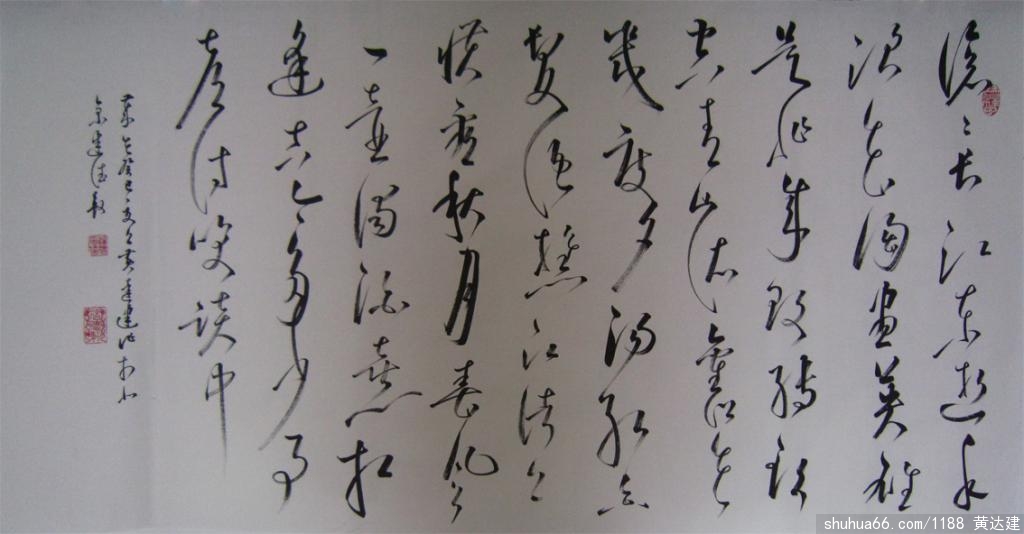 滚滚长江东逝水
浪花淘尽英雄
是非成败转头
空青山依旧在
几度夕阳红白
发渔樵江渚上
惯看秋月春风
一壶浊酒喜相
逢古今多少事
都付笑谈中
癸巳
shuhua66.com/1188 黄达建